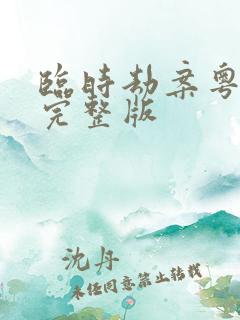 臨時劫案粵
完整版
沈丹
未经同意禁止转载